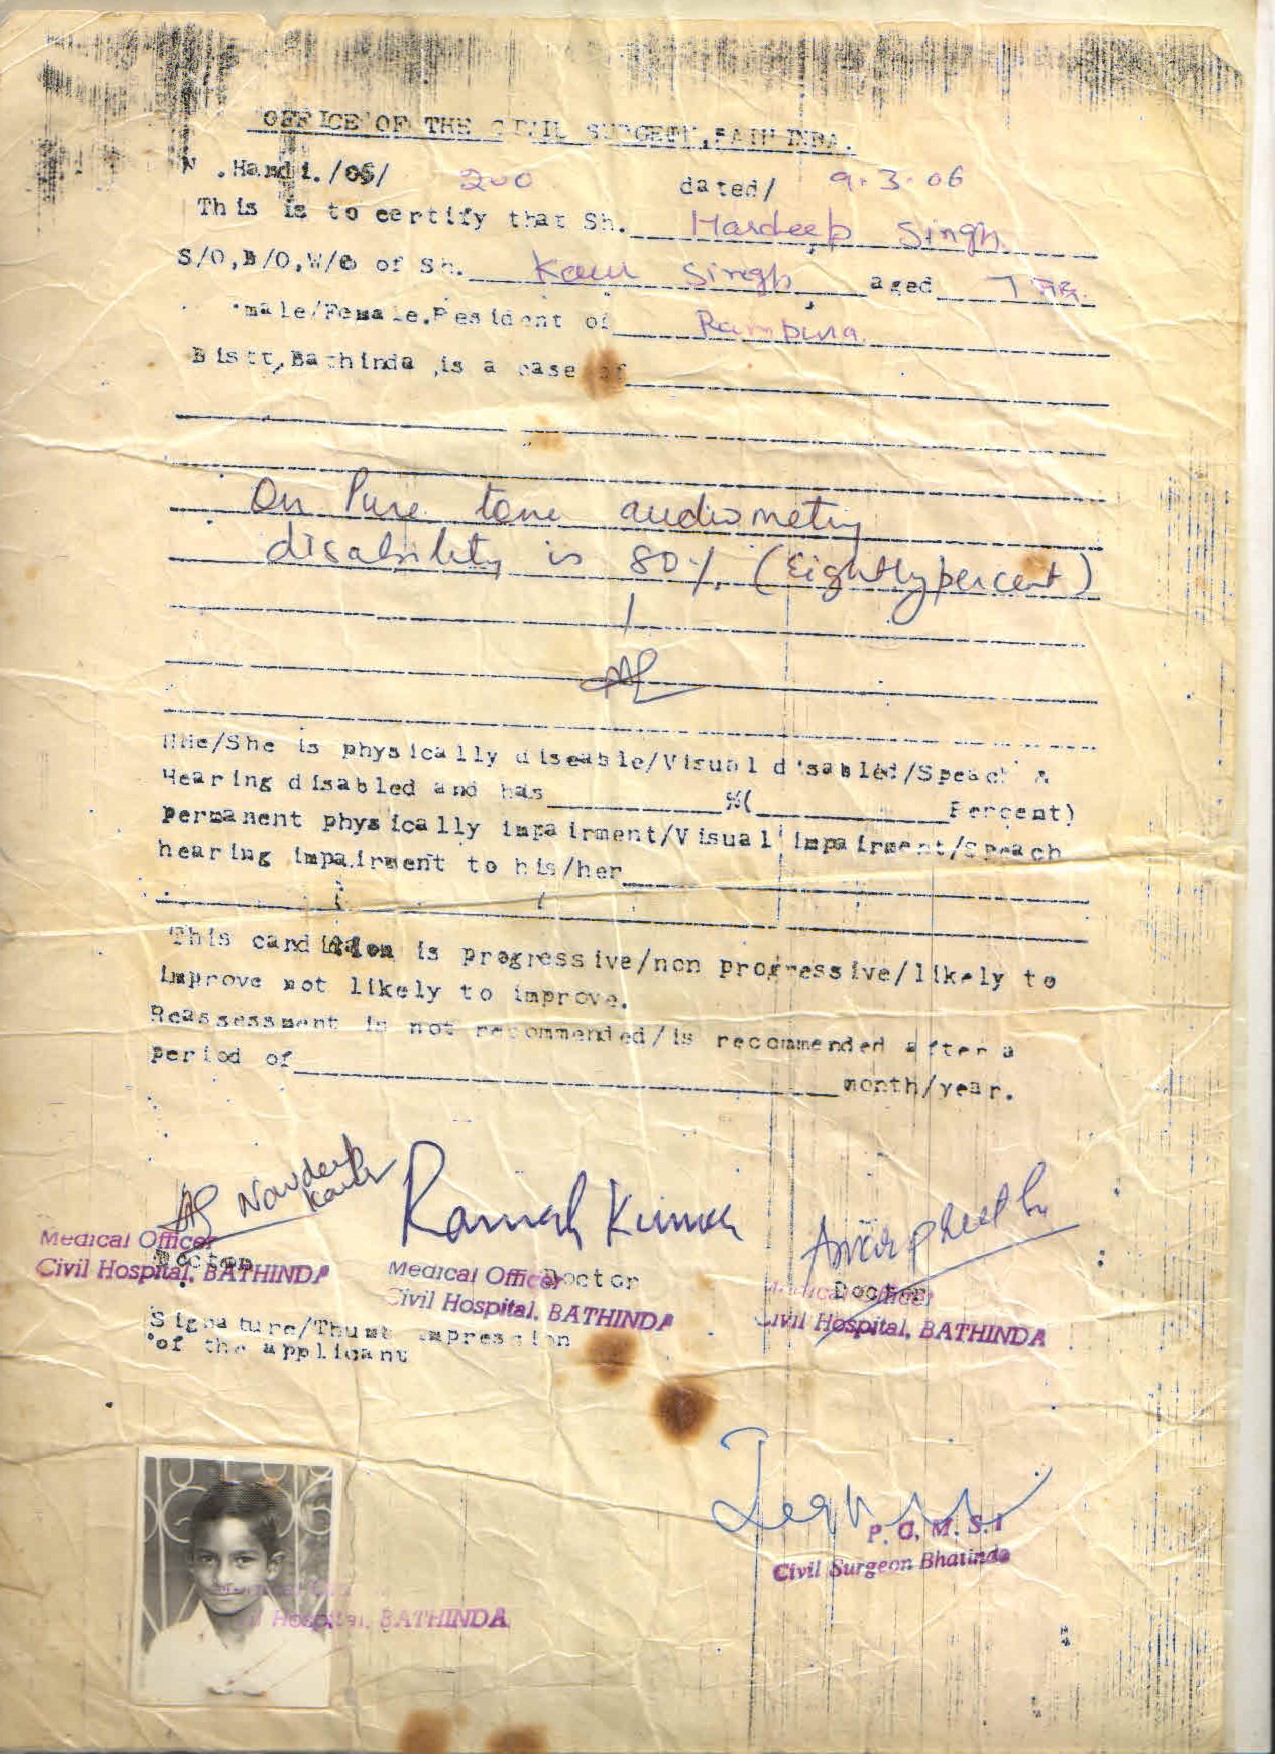 OFFICE OF THE CIVIL SURGEON, BATHINDA.
N .Handi./06/ 200 dated/ 9.3.06
This is to certify that Sh. Hardeep Singh
S/O,D/O,W/O of Sh. Kaur Singh aged 7 yrs.
male/Female.Resident of Rampura
Distt,Bathinda ,is a case of
On Pure tone audiometry
disability is 80% (Eightly percent)
HHe/She is physically diseable/Visual disabled/Speach &
Hearing disabled and has %( Percent)
Permanent physically impairment/Visual impairment/Speach
hearing impairment to his/her
This is progressive/non progressive/likely to
improve not likely to improve.
Reassessment is not recommended/is recommended after a
period of month/year.
Navdeep Kaur
Ramesh Kumar
Medical Officer
Doctor
Civil Hospital, BATHINDA
Medical Officer
Doctor
Civil Hospital, BATHINDA
Medical Officer
Doctor
Civil Hospital, BATHINDA
Signature/Thumb impression
of the applicant
P. C. M. S. I
Civil Surgeon Bhatinda
Hospital, BATHINDA